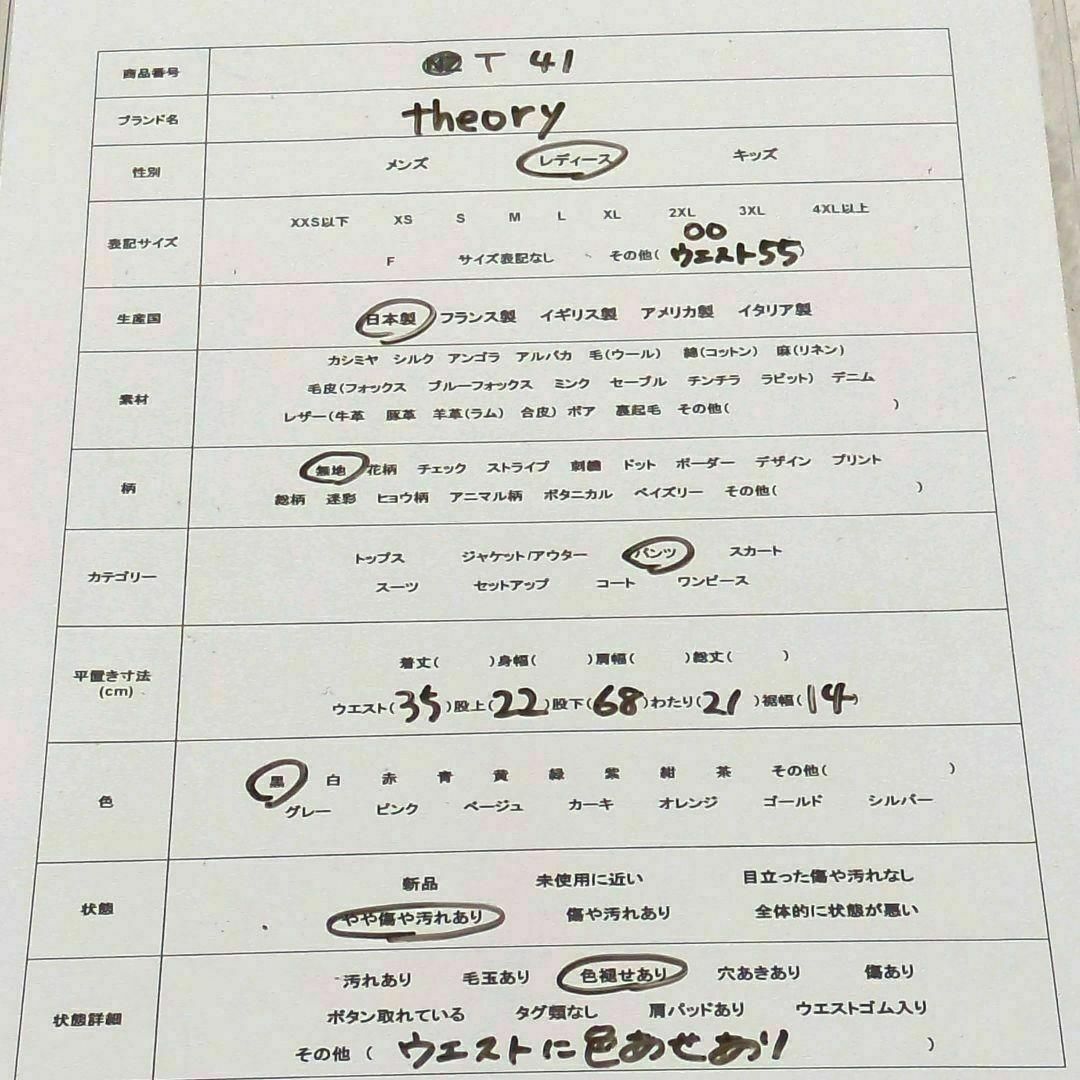 商品番号 T 41
ブランド名 theory
性別 メンズ レディース キッズ
XXS以下 XS S M L XL 2XL 3XL 4XL以上
表記サイズ
00
F サイズ表記なし その他( ウエスト55)
生産国 日本製 フランス製 イギリス製 アメリカ製 イタリア製
カシミヤ シルク アンゴラ アルパカ 毛(ウール) 綿(コットン) 麻(リネン)
素材 毛皮(フォックス ブルーフォックス ミンク セーブル チンチラ ラビット) デニム
レザー(牛革 豚革 羊革(ラム) 合皮) ボア 裏起毛 その他( )
柄 無地 花柄 チェック ストライプ 刺繍 ドット ボーダー デザイン プリント
総柄 迷彩 ヒョウ柄 アニマル柄 ボタニカル ペイズリー その他( )
カテゴリー トップス ジャケット/アウター パンツ スカート
スーツ セットアップ コート ワンピース
平置き寸法 着丈( )身幅( )肩幅( )総丈( )
(cm) ウエスト(35)股上(22)股下(68)わたり(21)裾幅(14)
色 黒 白 赤 青 黄 緑 紫 紺 茶 その他( )
グレー ピンク ベージュ カーキ オレンジ ゴールド シルバー
状態 新品 未使用に近い 目立った傷や汚れなし
やや傷や汚れあり 傷や汚れあり 全体的に状態が悪い
状態詳細 汚れあり 毛玉あり 色褪せあり 穴あきあり 傷あり
ボタン取れている タグ類なし 肩パッドあり ウエストゴム入り
その他 ( ウエストに色あせあり )